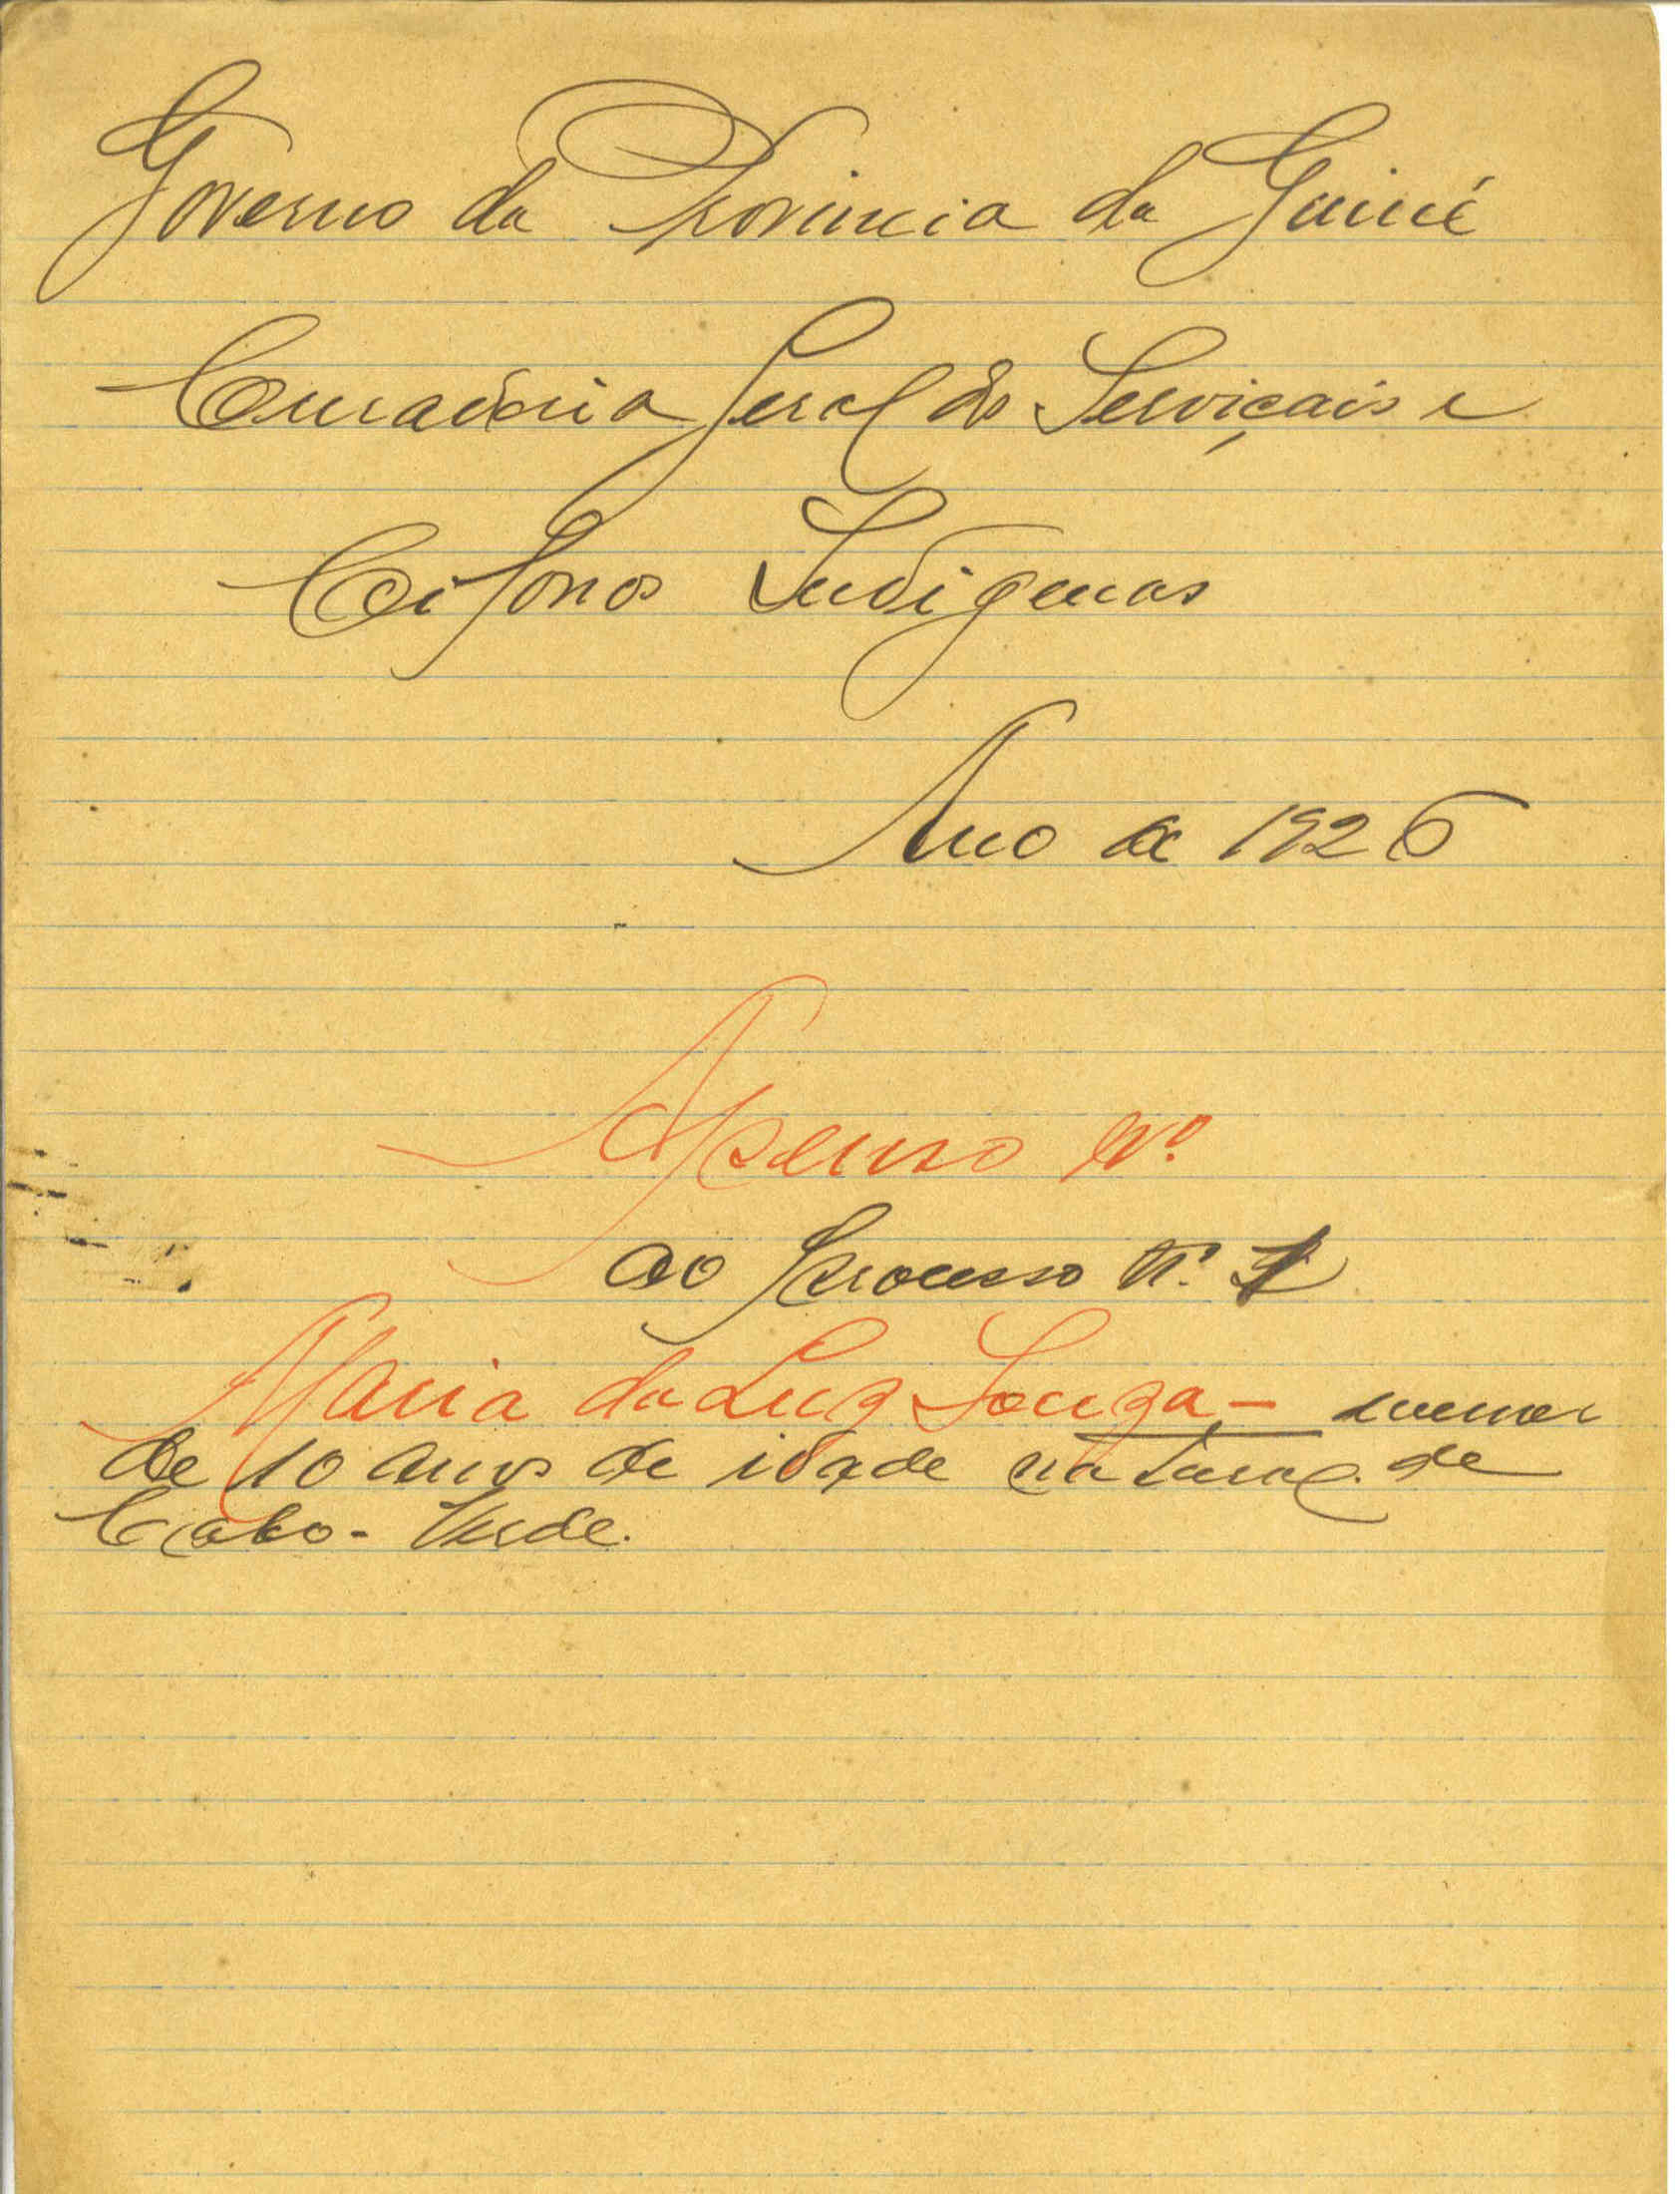 Governo da Provincia da Guiné
Curadoria Geral dos Serviçais e
Colonos Indigenas
Ano de 1926
Apenso Nº
ao Processo Nº 1
Maria da Luz Souza - menor
de 10 anos de idade natural de
Cabo-Verde.